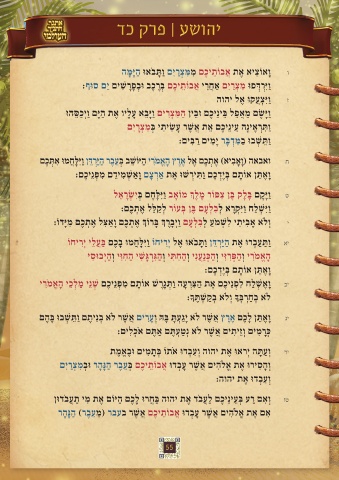 יהושע | פרק כד
ו וָאוֹצִיא אֶת אֲבוֹתֵיכֶם מִמִּצְרַיִם וַתָּבֹאוּ הַיָּמָּה
וַיִּרְדְּפוּ מִצְרַיִם אַחֲרֵי אֲבוֹתֵיכֶם בְּרֶכֶב וּבְפָרָשִׁים יַם סוּף:
ז וַיִּצְעֲקוּ אֶל יהוה
וַיָּשֶׂם מַאֲפֵל בֵּינֵיכֶם וּבֵין הַמִּצְרִים וַיָּבֵא עָלָיו אֶת הַיָּם וַיְכַסֵּהוּ
וַתִּרְאֶינָה עֵינֵיכֶם אֵת אֲשֶׁר עָשִׂיתִי בְּמִצְרָיִם
וַתֵּשְׁבוּ בַמִּדְבָּר יָמִים רַבִּים:
ח ואבאה (וָאָבִיא) אֶתְכֶם אֶל אֶרֶץ הָאֱמֹרִי הַיּוֹשֵׁב בְּעֵבֶר הַיַּרְדֵּן וַיִּלָּחֲמוּ אִתְּכֶם
וָאֶתֵּן אוֹתָם בְּיֶדְכֶם וַתִּירְשׁוּ אֶת אַרְצָם וָאַשְׁמִידֵם מִפְּנֵיכֶם:
ט וַיָּקָם בָּלָק בֶּן צִפּוֹר מֶלֶךְ מוֹאָב וַיִּלָּחֶם בְּיִשְׂרָאֵל
וַיִּשְׁלַח וַיִּקְרָא לְבִלְעָם בֶּן בְּעוֹר לְקַלֵּל אֶתְכֶם:
י וְלֹא אָבִיתִי לִשְׁמֹעַ לְבִלְעָם וַיְבָרֶךְ בָּרוֹךְ אֶתְכֶם וָאַצִּל אֶתְכֶם מִיָּדוֹ:
יא וַתַּעַבְרוּ אֶת הַיַּרְדֵּן וַתָּבֹאוּ אֶל יְרִיחוֹ וַיִּלָּחֲמוּ בָכֶם בַּעֲלֵי יְרִיחוֹ
הָאֱמֹרִי וְהַפְּרִזִּי וְהַכְּנַעֲנִי וְהַחִתִּי וְהַגִּרְגָּשִׁי הַחִוִּי וְהַיְבוּסִי
וָאֶתֵּן אוֹתָם בְּיֶדְכֶם:
יב וָאֶשְׁלַח לִפְנֵיכֶם אֶת הַצִּרְעָה וַתְּגָרֶשׁ אוֹתָם מִפְּנֵיכֶם שְׁנֵי מַלְכֵי הָאֱמֹרִי
לֹא בְחַרְבְּךָ וְלֹא בְקַשְׁתֶּךָ:
יג וָאֶתֵּן לָכֶם אֶרֶץ אֲשֶׁר לֹא יָגַעְתָּ בָּהּ וְעָרִים אֲשֶׁר לֹא בְנִיתֶם וַתֵּשְׁבוּ בָּהֶם
כְּרָמִים וְזֵיתִים אֲשֶׁר לֹא נְטַעְתֶּם אַתֶּם אֹכְלִים:
יד וְעַתָּה יְראוּ אֶת יהוה וְעִבְדוּ אֹתוֹ בְּתָמִים וּבֶאֱמֶת
וְהָסִירוּ אֶת אֱלֹהִים אֲשֶׁר עָבְדוּ אֲבוֹתֵיכֶם בְּעֵבֶר הַנָּהָר וּבְמִצְרַיִם
וְעִבְדוּ אֶת יהוה:
טו וְאִם רַע בְּעֵינֵיכֶם לַעֲבֹד אֶת יהוה בַּחֲרוּ לָכֶם הַיּוֹם אֶת מִי תַעֲבֹדוּן
אִם אֶת אֱלֹהִים אֲשֶׁר עָבְדוּ אֲבוֹתֵיכֶם אֲשֶׁר בעבר (מֵעֵבֶר) הַנָּהָר
55